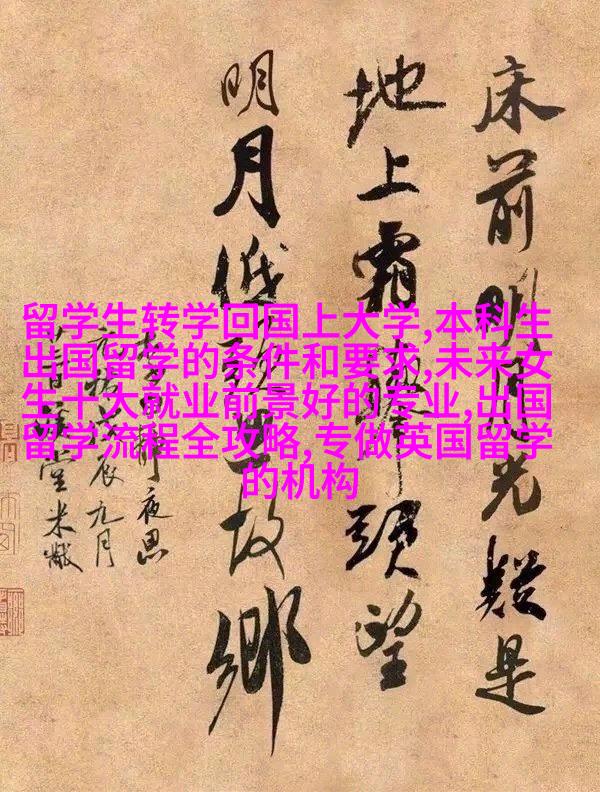 留学生转学回国上大学,本科生
出国留学的条件和要求,未来女
生十大就业前景好的专业,出国
留学流程全攻略,专做英国留学
的机构
床前明月光疑是
地上霜舉頭望
明月低頭思故鄉
夜思
九月
堂米黻